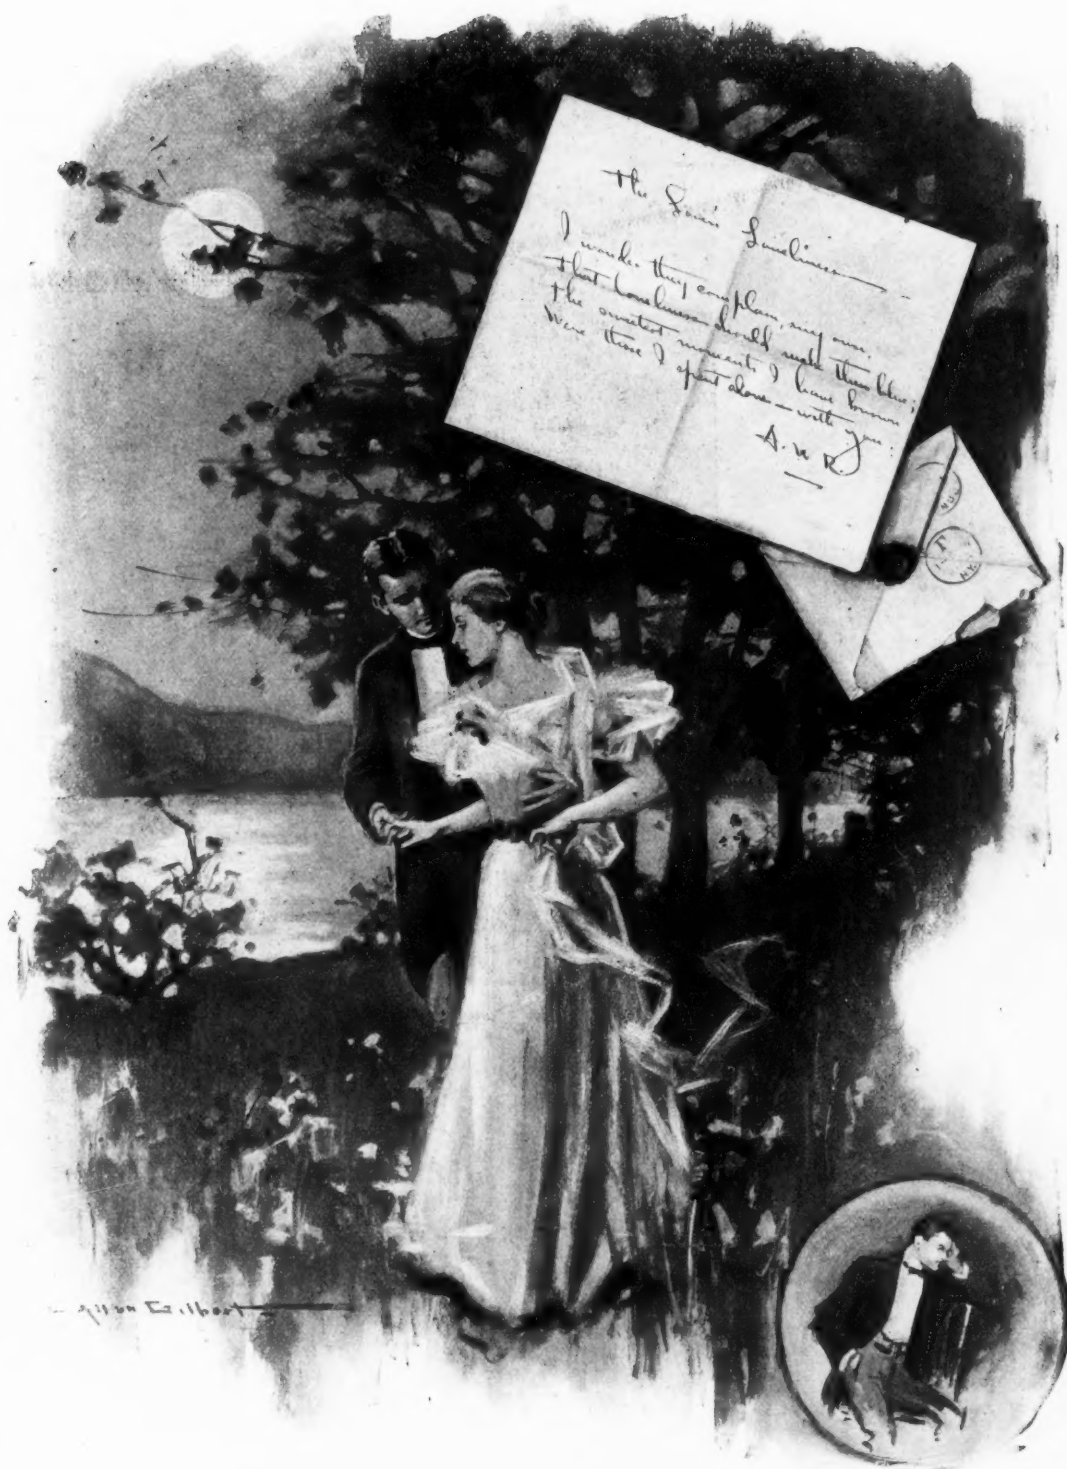 The Love's Loneliness
I wonder they complain, my own,
That loneliness should make them blue;
The sweetest moments I have known
Were those I spent alone – with you.
A. W. R.
C. Allan Gilbert